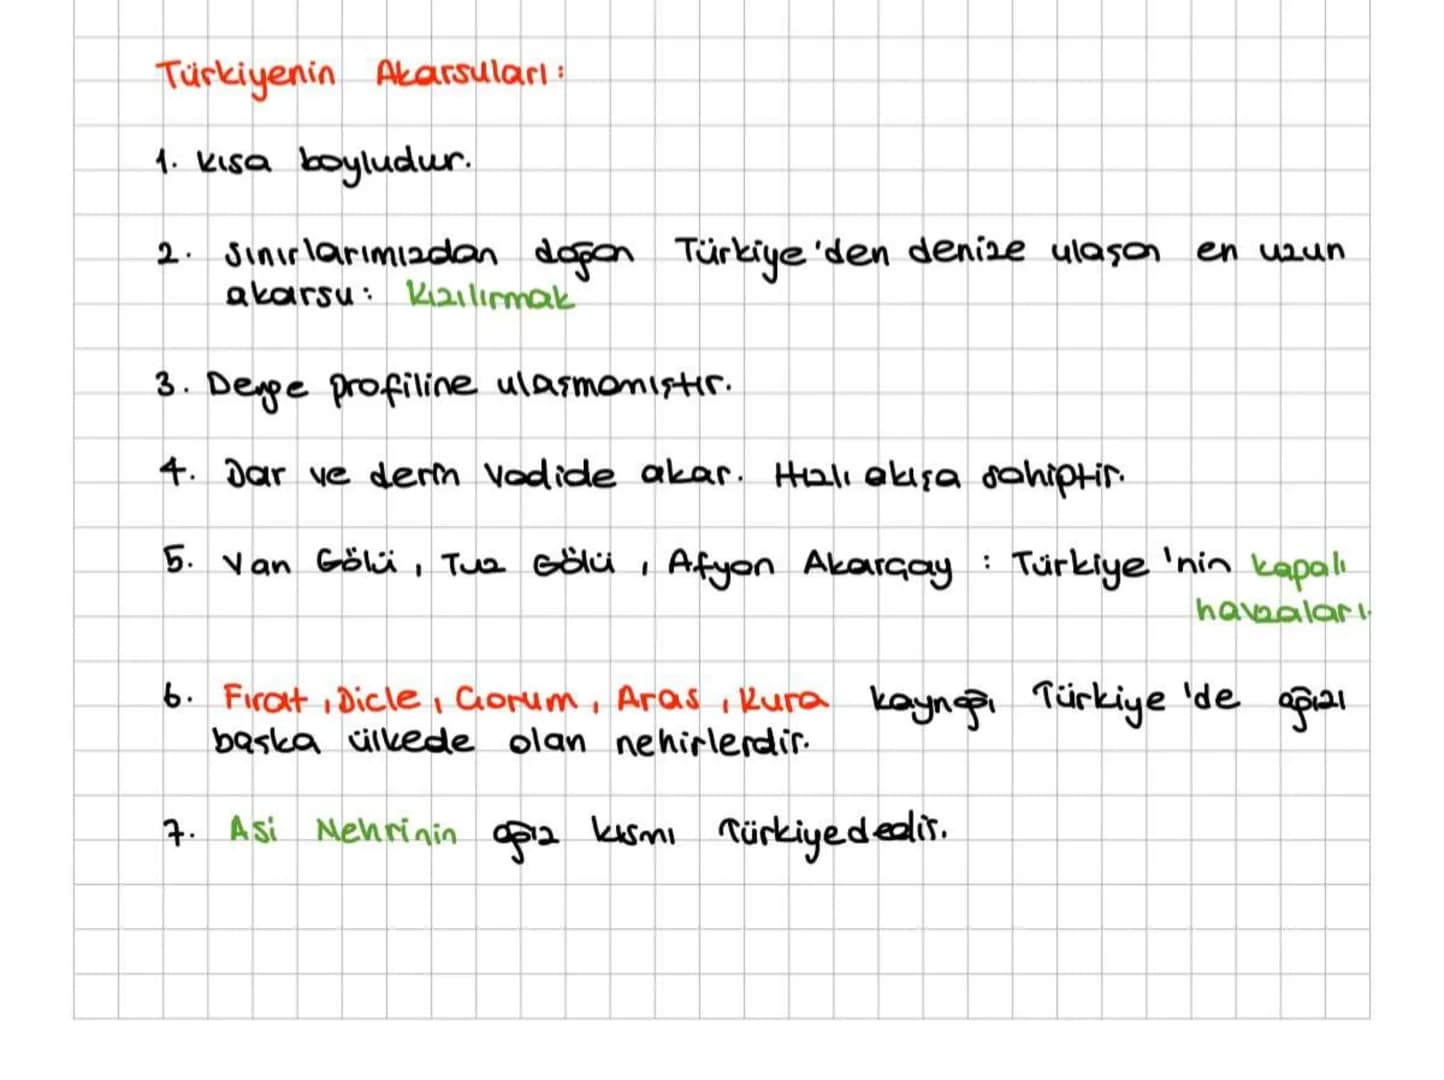 Türkiyenin Akarsuları:
1. Kısa boyludur.
2. Sınırlarımızdan doğan Türkiye'den denize ulaşan en uzun
akarsu: Kızılırmak
3. Denge profiline ulaşmamıştır.
4. Dar ve derin vadide akar. Hızlı akışa sahiptir.
5. Van Gölü, Tuz Gölü, Afyon Akarçay : Türkiye'nin kapalı
havzaları.
6. Fırat, Dicle, Çorum, Aras, Kura kaynağı Türkiye'de ağızı
başka ülkede olan nehirlerdir.
7. Asi Nehrinin ağız kısmı Türkiyededir.